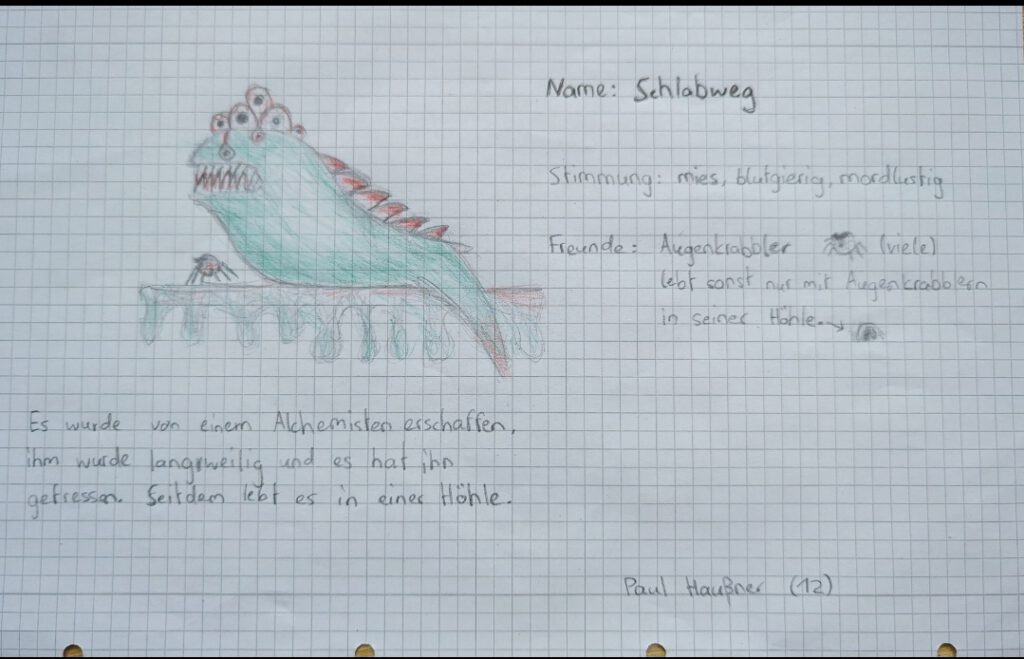 Name: Schlabweg
Stimmung: mies, blutgierig, mordlustig
Freunde: Augenkrabbler (viele)
lebt sonst nur mit Augenkrabblern
in seiner Höhle.
Es wurde von einem Alchemisten erschaffen,
ihm wurde langweilig und es hat ihn
gefressen. Seitdem lebt es in einer Höhle.
Paul Haußner (12)